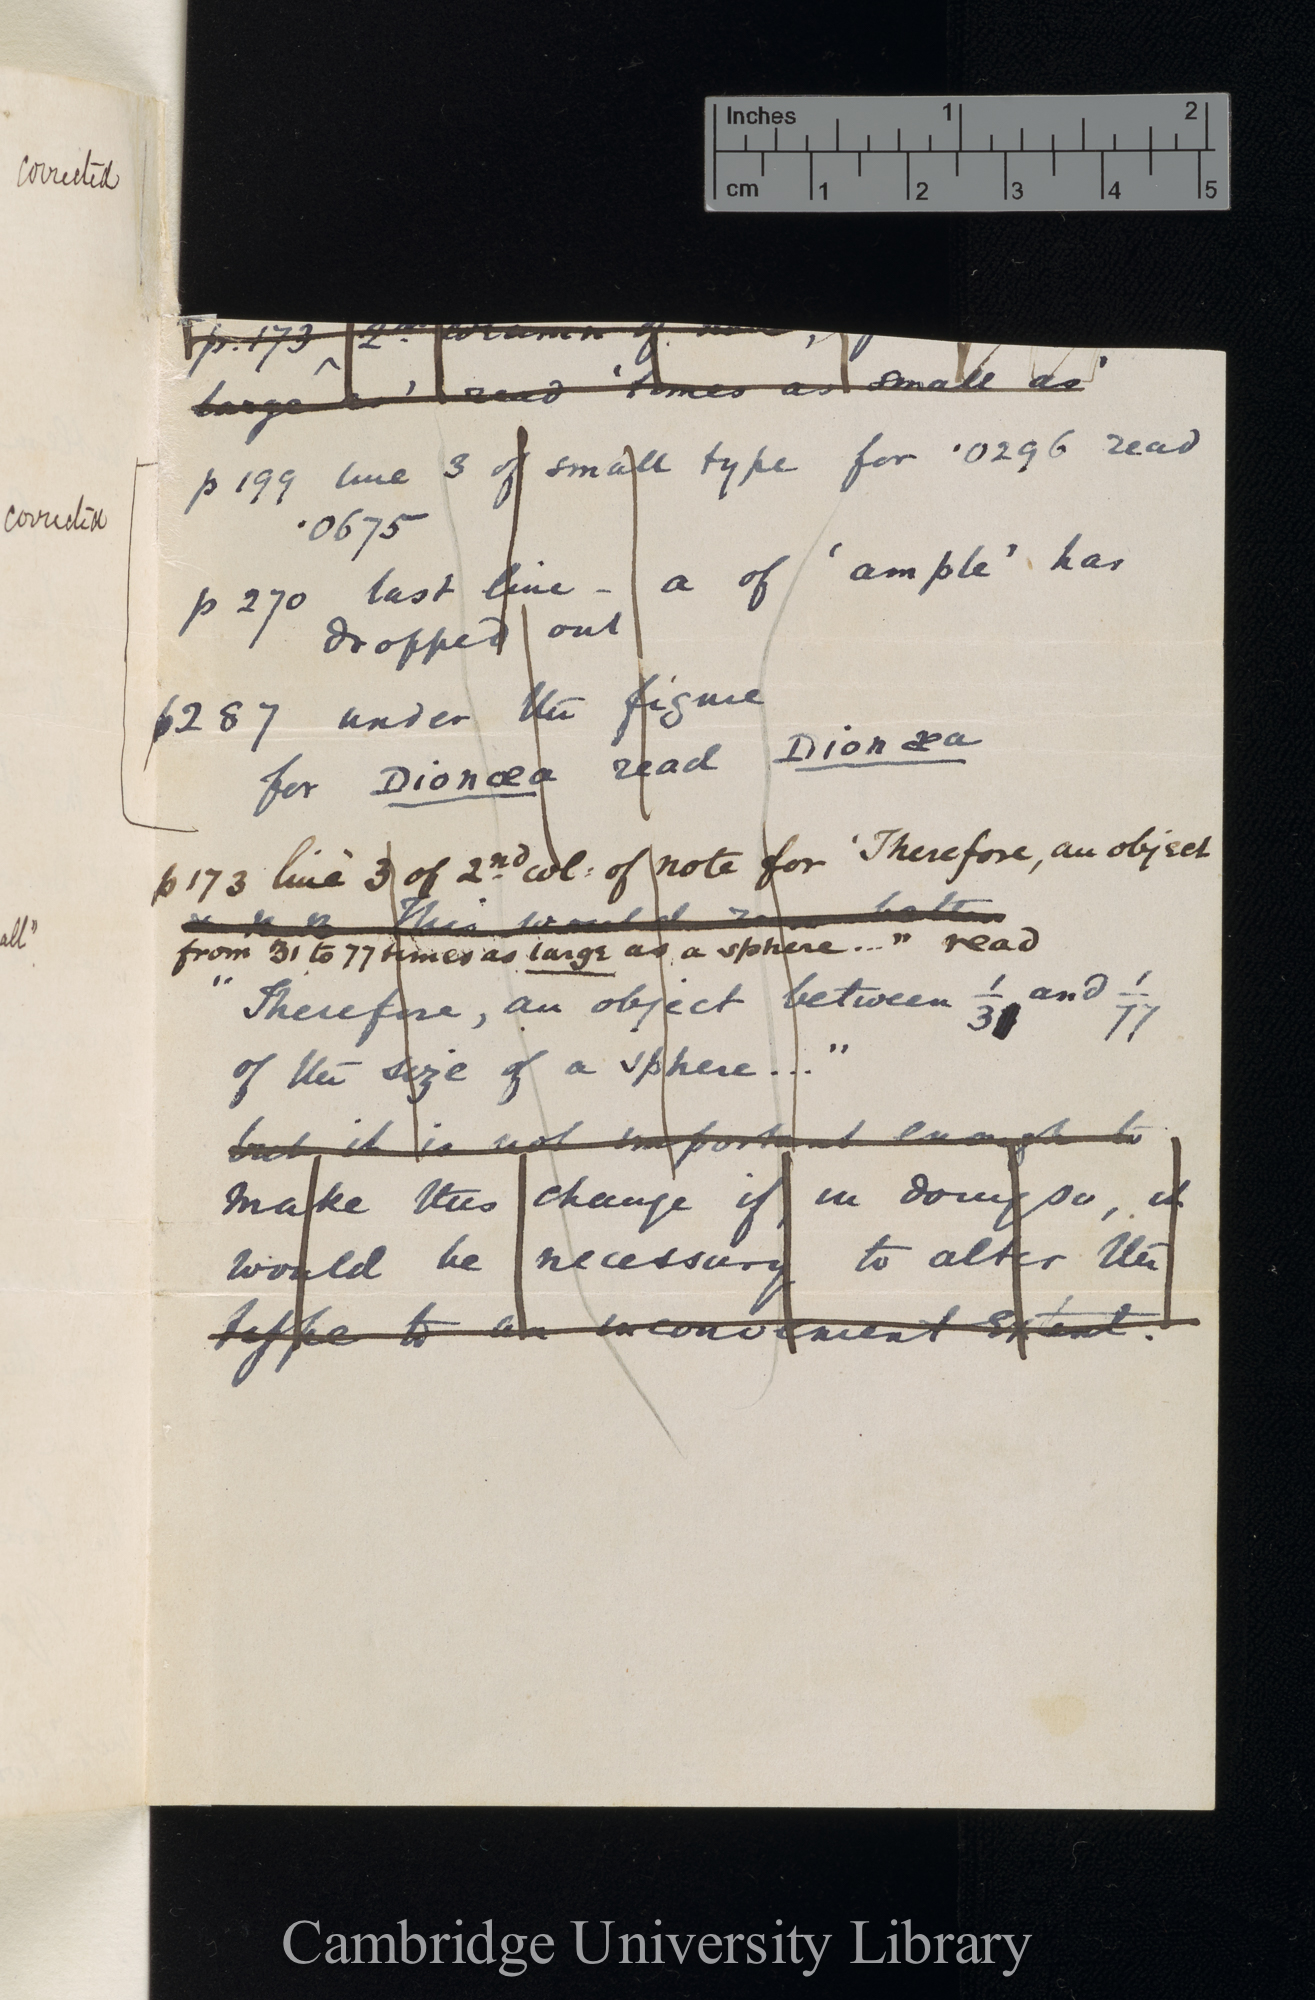 Inches 1 2
cm 1 2 3 4 5
corrected
p. 173 2nd column of note,
large as' read 'times as small as'
p 199 line 3 of small type for ·0296 read
·0675
corrected
p 270 last line - a of 'ample' has
dropped out
p287 under the figure
for Dionœa read Dionæa
p173 line 3 of 2nd col: of note for 'Therefore, an object
x x x This would read better
all"
from 31 to 77 times as large as a sphere..." read
"Therefore, an object between 1/31 and 1/77
of the size of a sphere..."
but it is not important enough to
make this change if, in doing so, it
would be necessary to alter the
type to an inconvenient extent.
Cambridge University Library